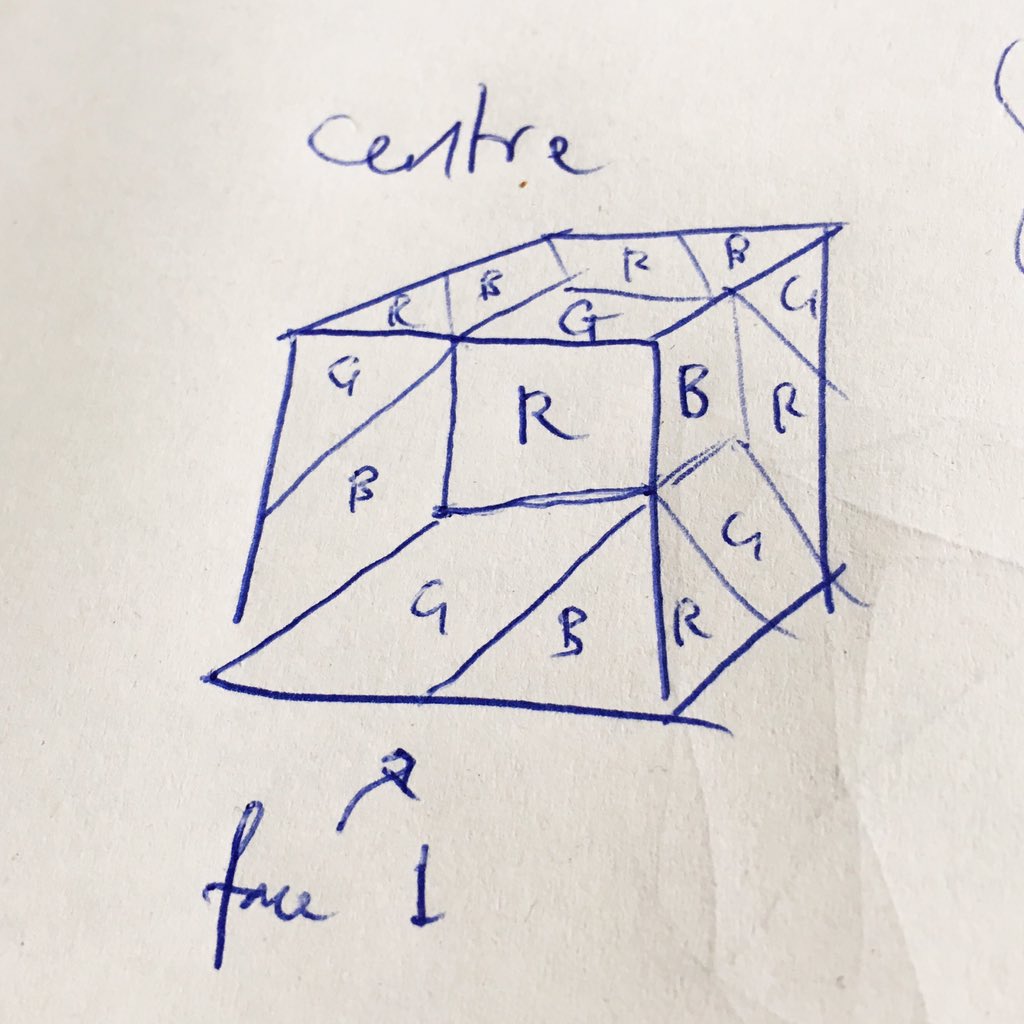 Centre
R B R B
G G G
R B R
B
G G
B R
face 1